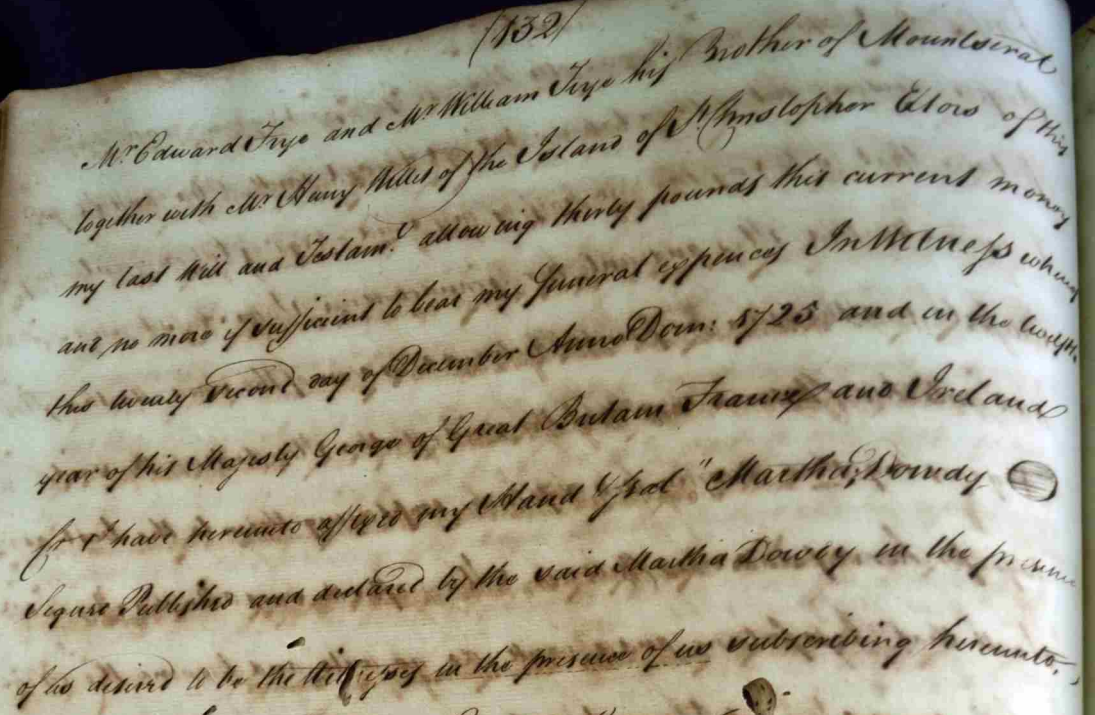 (132)
Mr. Edward Frye and Mr. William Frye his Brother of Mountserat
together with Mr. Henry Willet of the Island of St. Christopher Extors of this
my last Will and Testamt. allowing thirty pounds this current money
and no more if sufficient to bear my funeral expences In Witness whereof
this twenty second day of December Anno Dom: 1725 and in the twelfth
year of his Majesty George of Great Britain France and Ireland
&c I have hereunto affixed my Hand & Seal " Martha Dowdy
Signed Published and declared by the said Martha Dowdy in the presence
of us desired to be the Witnesses in the presence of us subscribing hereunto.,